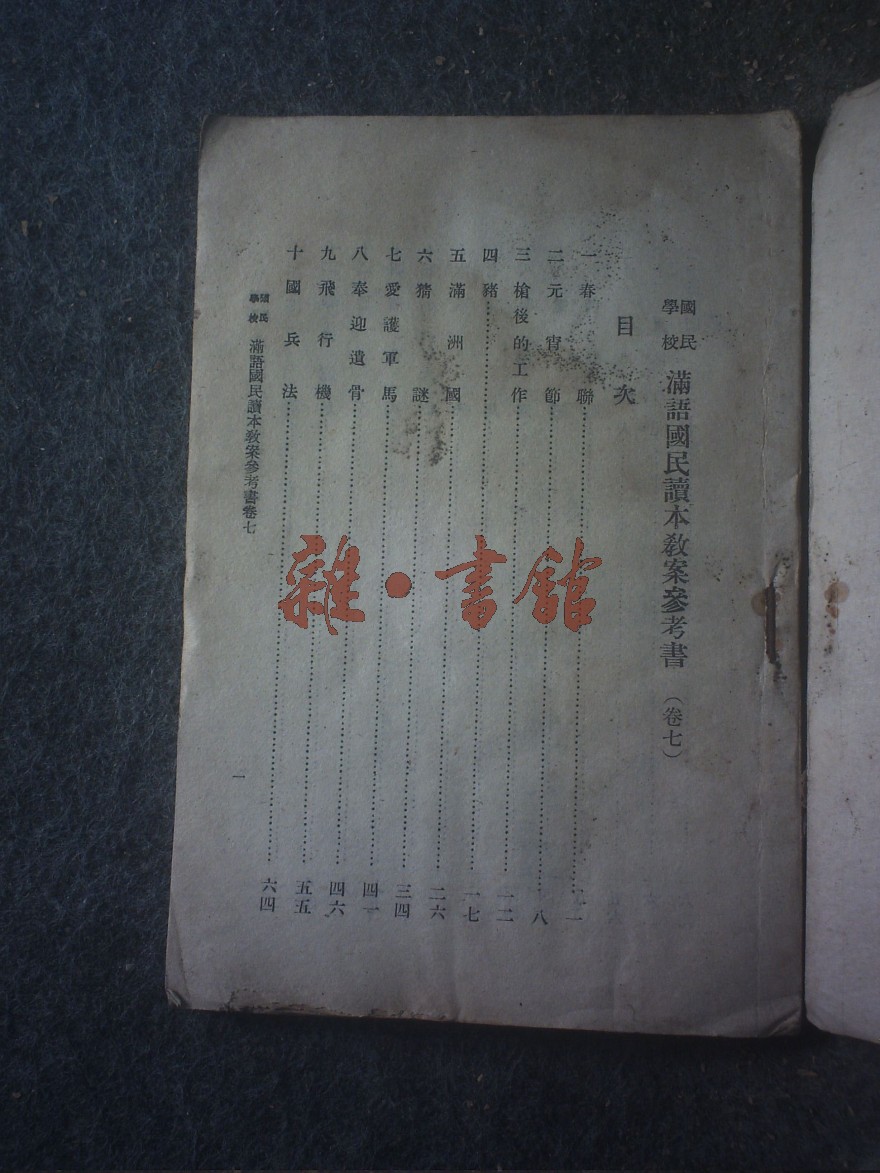 國民學校 滿語國民讀本教案參考書（卷七）
目次
一 春聯……一
二 元宵節……八
三 槍後的工作……一二
四 豬……一七
五 滿洲國……二六
六 猜謎……三四
七 愛護軍馬……四一
八 奉迎遺骨……四六
九 飛行機……五五
十 國兵法……六四
國民學校 滿語國民讀本教案參考書卷七
一
雜·書館